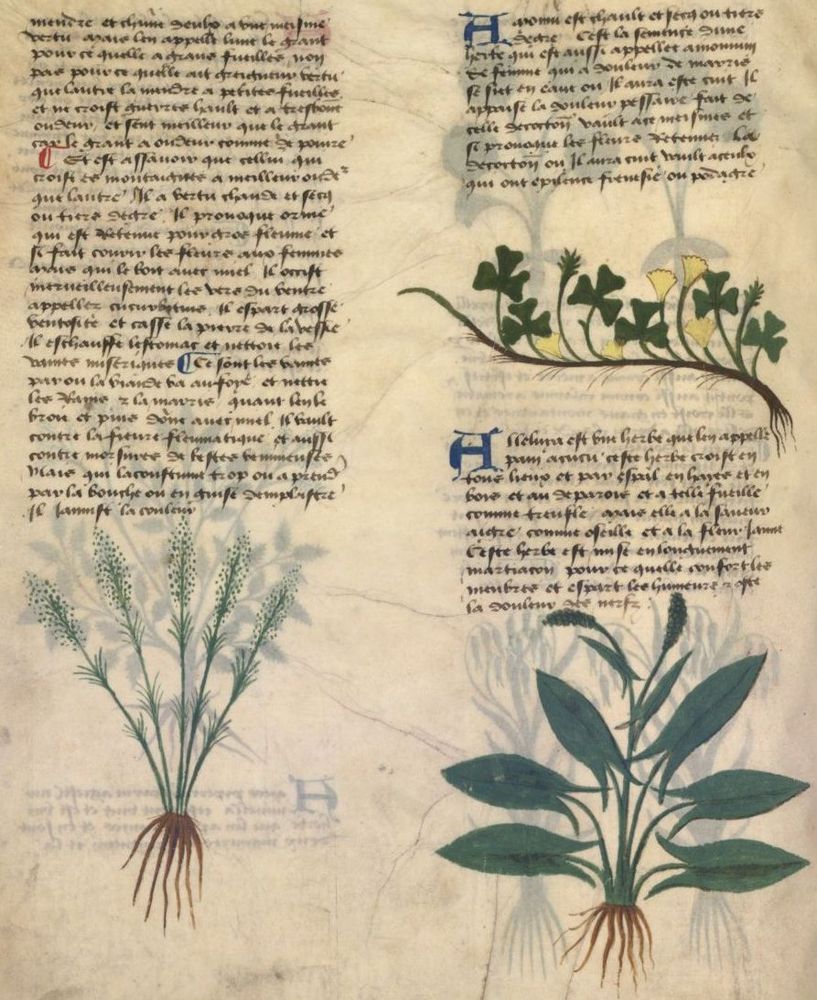 mendre et chune deulx a une meisme
vertu mais len appelle lune le grant
pour ce quelle a grans fueilles non
pas pour ce quelle ait greigneur vertu
que lautre la mendre a petites fueilles
et ne croist guerres hault et a tresbone
oudeur et sent meilleur que le grant
car le grant a oudeur comme de poivre
Et est assavoir que cellui qui
croist es montaignes a meilleur oudeᵣ
que lautre Il a vertu chaude et secq
ou tiers degre Il provoque orine
qui est Retenue pour gros fleume et
si fait courir les fleurs aux femmes
mais qui le boit avec miel Il occist
merveilleusement les vers du ventre
appellez cucurbitins Il espart grosse
ventosite et casse la pierre de la vessie
Il eschauffe lestomac et nettoie les
vaines miseriques Ce sont les vaines
par ou la viande va au foye et nettie
les Rains la marris quant len le
brou et puis donne avec miel Il vault
contre la fievre fleumatique et aussi
contre morsures de bestes venimeuses
Mais qui lacoustume trop ou a prend
par la bouche ou en guise demplastre
Il Jaunist la couleur
Amomu est chault et secq ou tiers
degre Cest la semence dune
herbe qui est aussi appellee amomum
Se femme qui a douleur de marris
se siet en eaue ou Il aura este cuit Il
appaise la douleur pessaire fait de
celle decoction vault a ce meismes et
si provoque les fleurs Retenues La
decoction ou Il aura cuit vault a ceulx
qui ont epilence frenesie ou podagre
Alleluya est une herbe que len appelle
pain a cucu ceste herbe croist en
tous lieux et par espil en hayes et en
bois et au de parois et a telle fueille
comme treufle mais elle a la saveur
aigre comme oseille et a la fleur Jaune
Ceste herbe est mise en longuement
martiacon pour ce quelle confort les
membres et espart les humeurs oste
la douleur des nerfz